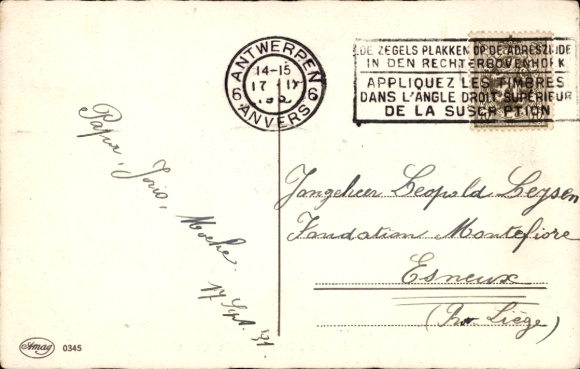 ANTWERPEN
14-15
17 IX
6 6
ANVERS
DE ZEGELS PLAKKEN OP DE ADRESZIJDE
IN DEN RECHTERBOVENHOEK
APPLIQUEZ LES TIMBRES
DANS L'ANGLE DROIT SUPERIEUR
DE LA SUSCRIPTION
Papa, Joris, Moeke.
17 Sept. '31
Jongeheer Leopold Leysen
Fondation Montefiore
Esneux
(Pr. Liège)
Amag 0345